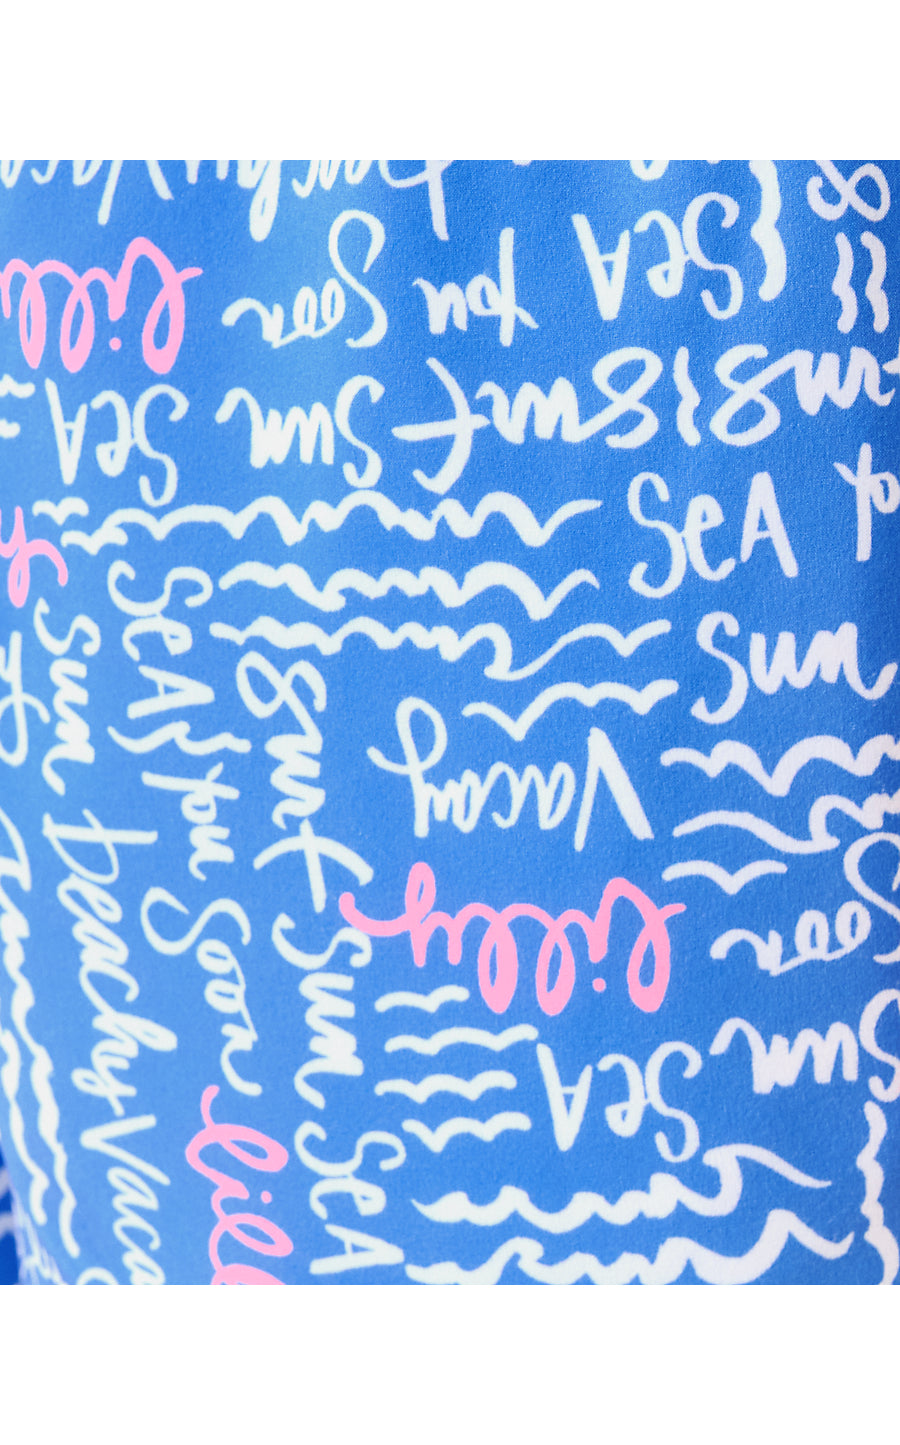 beachy Vaca
Soon
Sea you
lilly
Sun
Surf
Surf
Sea
Sea
Sea you Soon
Sun
Sun beachy Vaca
Surf Sun Sea
Vacay
lilly
Soon
Sun
Sea
lill